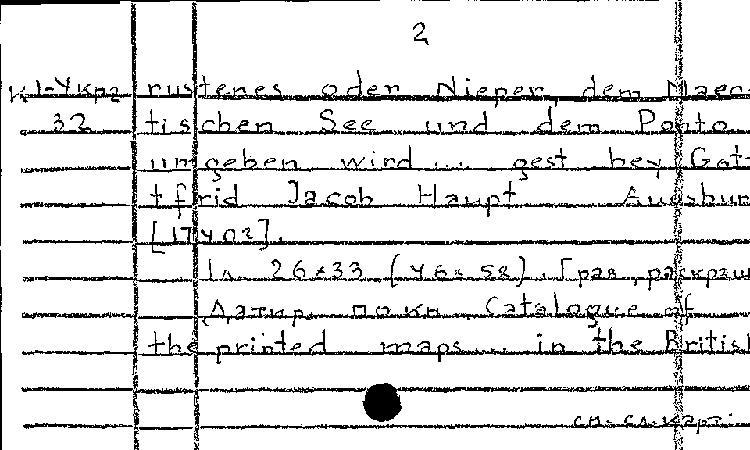 2
К1-Укр2 rustenes oder Nieper, dem Maeo
32 tischen See und dem Ponto
umgeben wird... gest bey Got
tfrid Jacob Haupt Augsbur
[1740?].
1л. 26x33 (46x58). Грав, раскраш
Датир. по кн. Catalogue of
the printed maps... in the British
см. сл. карт.